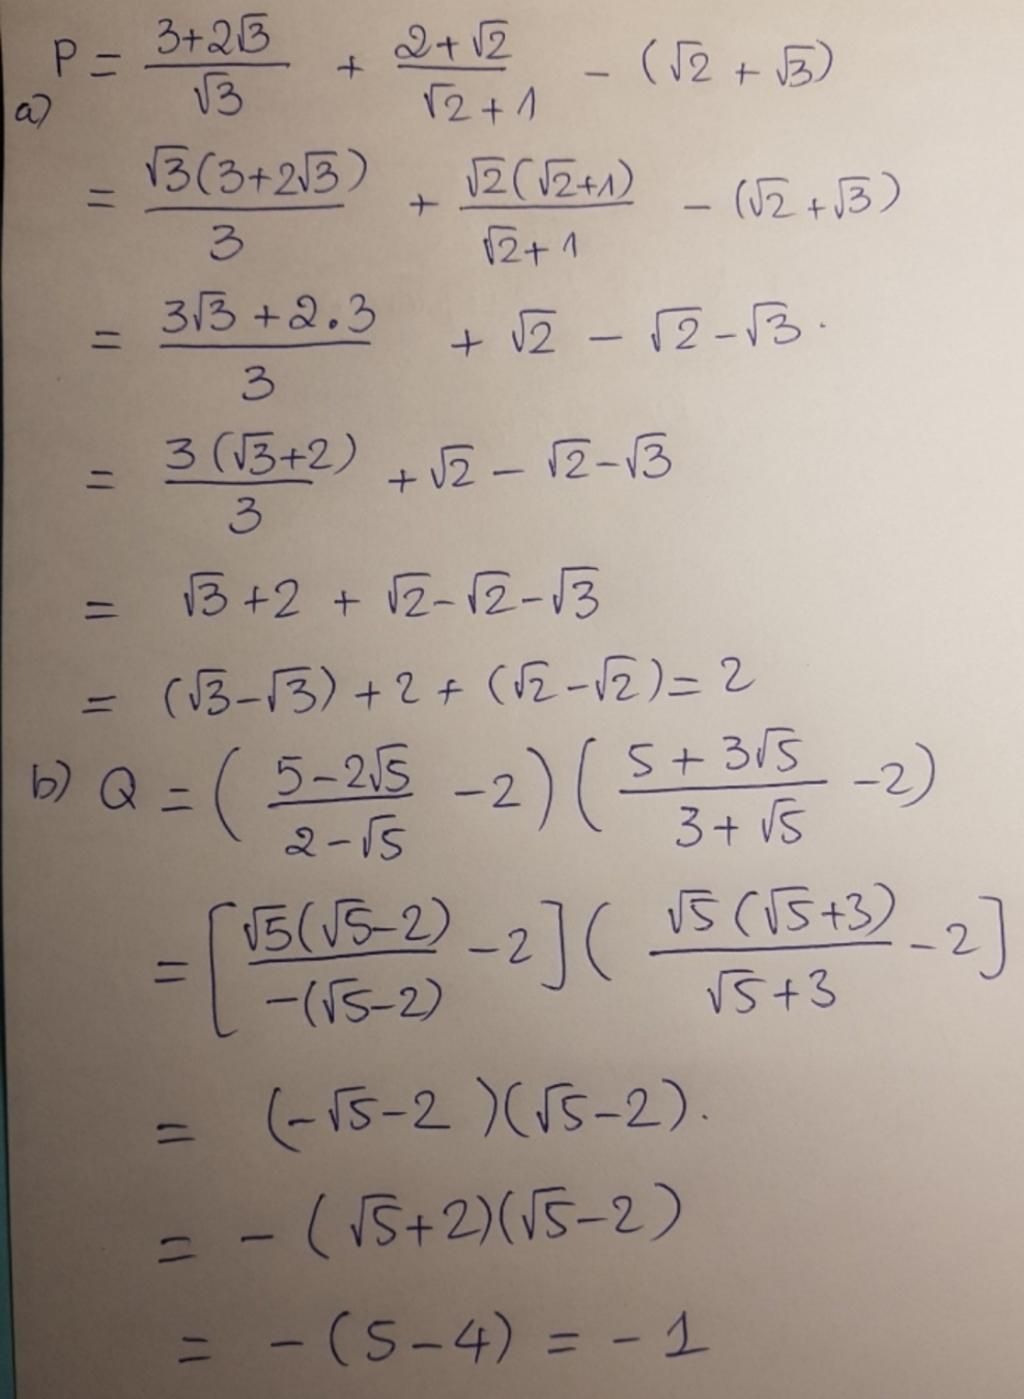 a) P = (3+2√3)/√3 + (2+√2)/(√2+1) - (√2 + √3)
= √3(3+2√3)/3 + √2(√2+1)/(√2+1) - (√2+√3)
= (3√3+2.3)/3 + √2 - √2-√3.
= 3(√3+2)/3 + √2 - √2-√3
= √3+2 + √2-√2-√3
= (√3-√3) + 2 + (√2-√2) = 2
b) Q = ( (5-2√5)/(2-√5) -2) ( (5+3√5)/(3+√5) -2)
= [ √5(√5-2)/-(√5-2) -2 ] ( √5(√5+3)/(√5+3) -2 ]
= (-√5-2)(√5-2).
= - (√5+2)(√5-2)
= - (5-4) = -1